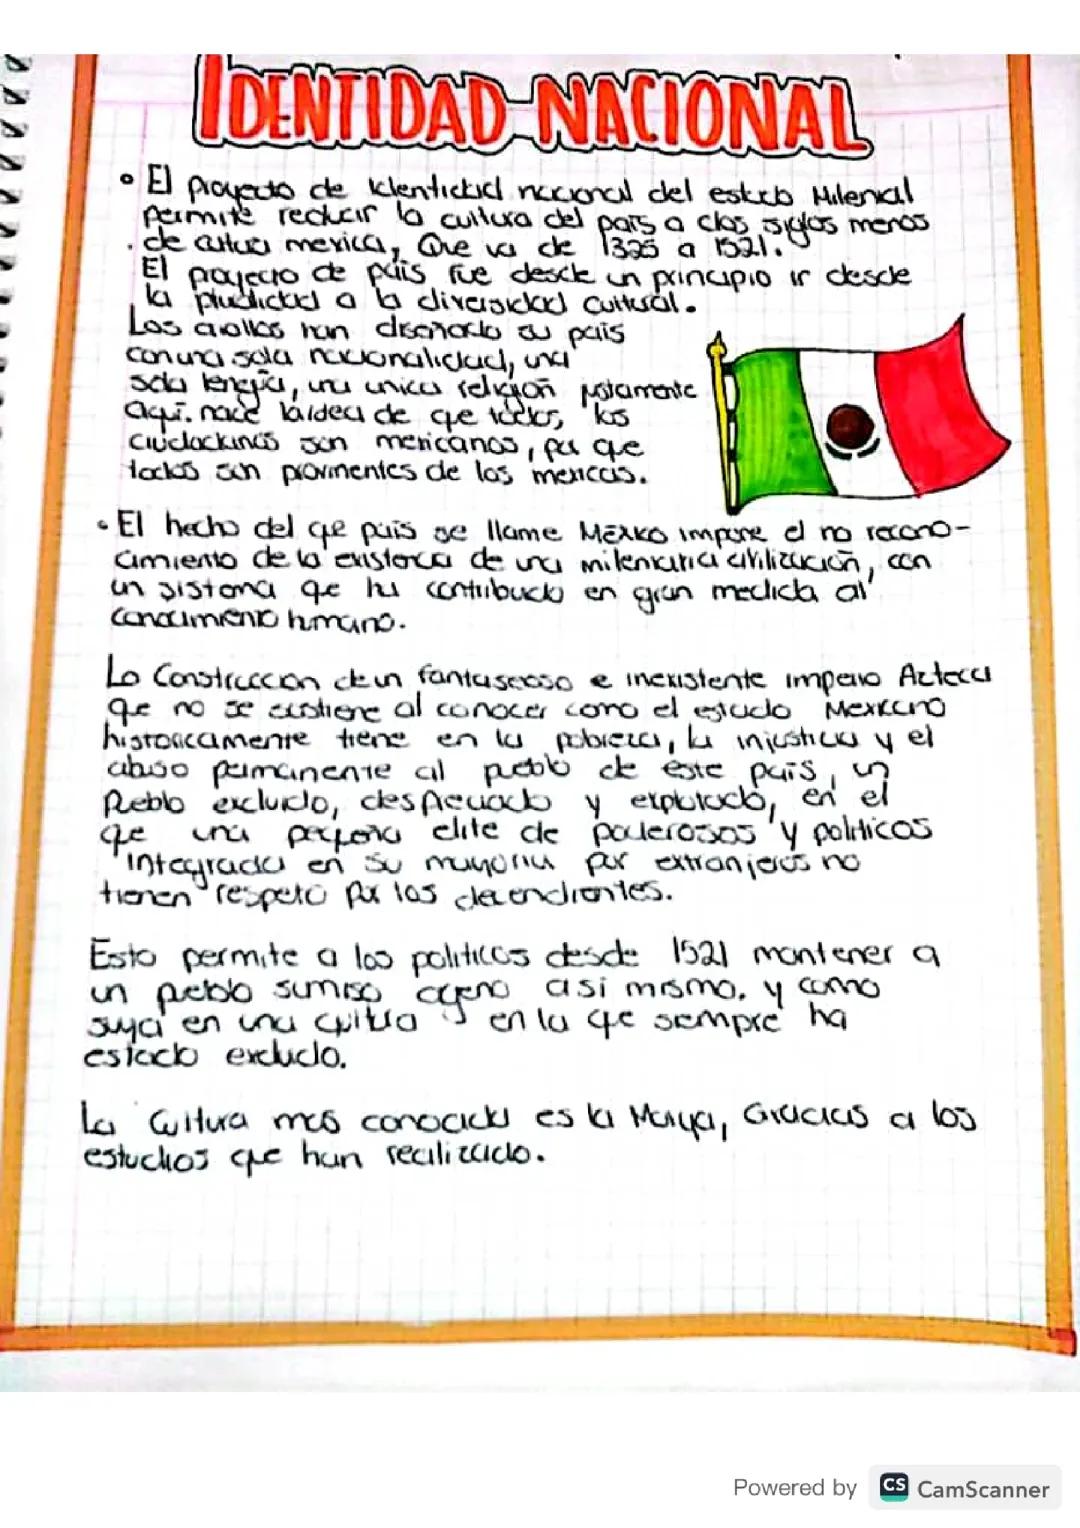 IDENTIDAD NACIONAL
• El proyecto de identidad nacional del estado Milenial
permite reducir la cultura del país a dos siglos menos
de cultura mexica, Que va de 1325 a 1521.
El proyecto de país fue desde un principio ir desde
la pluralidad a la diversidad cultural.
Los criollos han diseñado su país
con una sola nacionalidad, una
sola lengua, una unica religión justamente
aquí. nace la idea de que todos, los
ciudadanos son mexicanos, por que
todos son provinientes de los mexicas.
• El hecho del que pais se llame México impone el no recono-
cimiento de la existencia de una milenaria civilización, con
un sistema que ha contribuido en gran medida al
conocimiento humano.
La Construccion de un fantaseoso e inexistente imperio Azteca
que no se sostiene al conocer como el estado Mexicano
historicamente tiene en la pobreza, la injusticia y el
abuso permanente al pueblo de este país, un
Pueblo excluido, despreciado y explotado, en el
que una pequeña elite de poderosos y politicos
Integrada en su mayoria por extranjeros no
tienen respeto por los decendientes.
Esto permite a los politicos desde 1521 mantener a
un pueblo sumiso ageno asi mismo. y como
suya en una cultura en la que siempre ha
estado excluido.
La Cultura mas conocida es la Maya, Gracias a los
estudios que han realizado.
Powered by CS CamScanner